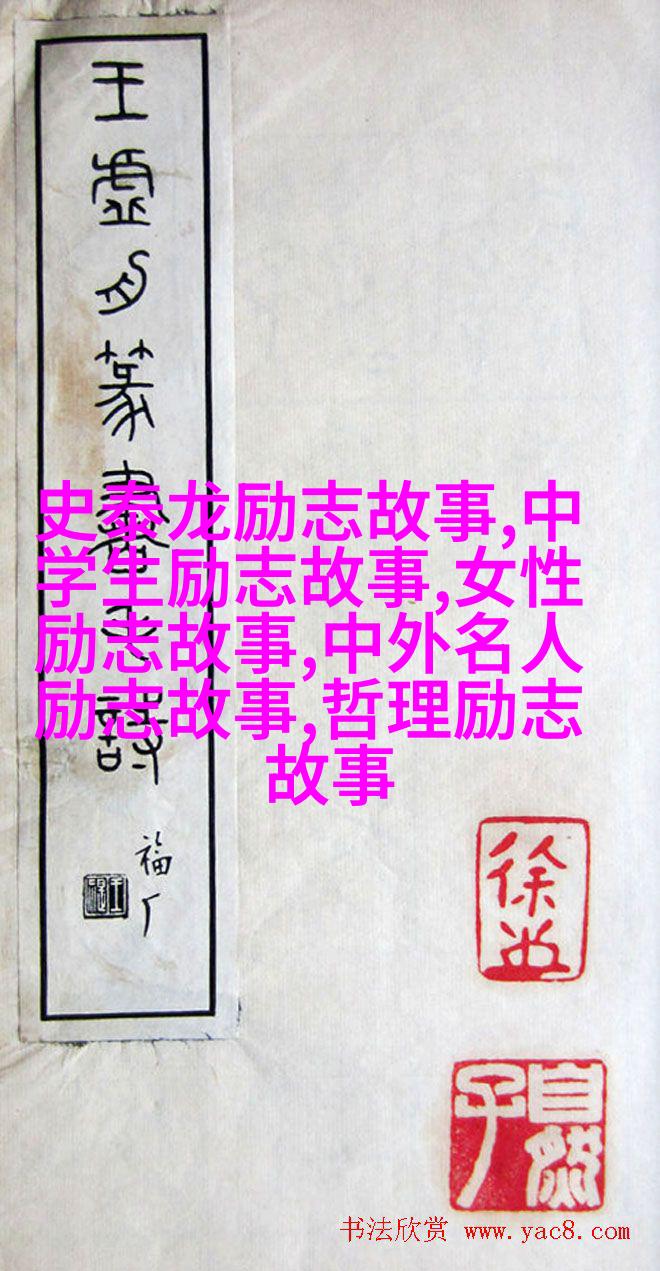 王虛舟篆書詩
福厂
史泰龙励志故事,中
学生励志故事,女性
励志故事,中外名人
励志故事,哲理励志
故事
徐
自然子
书法欣赏 www.yac8.com